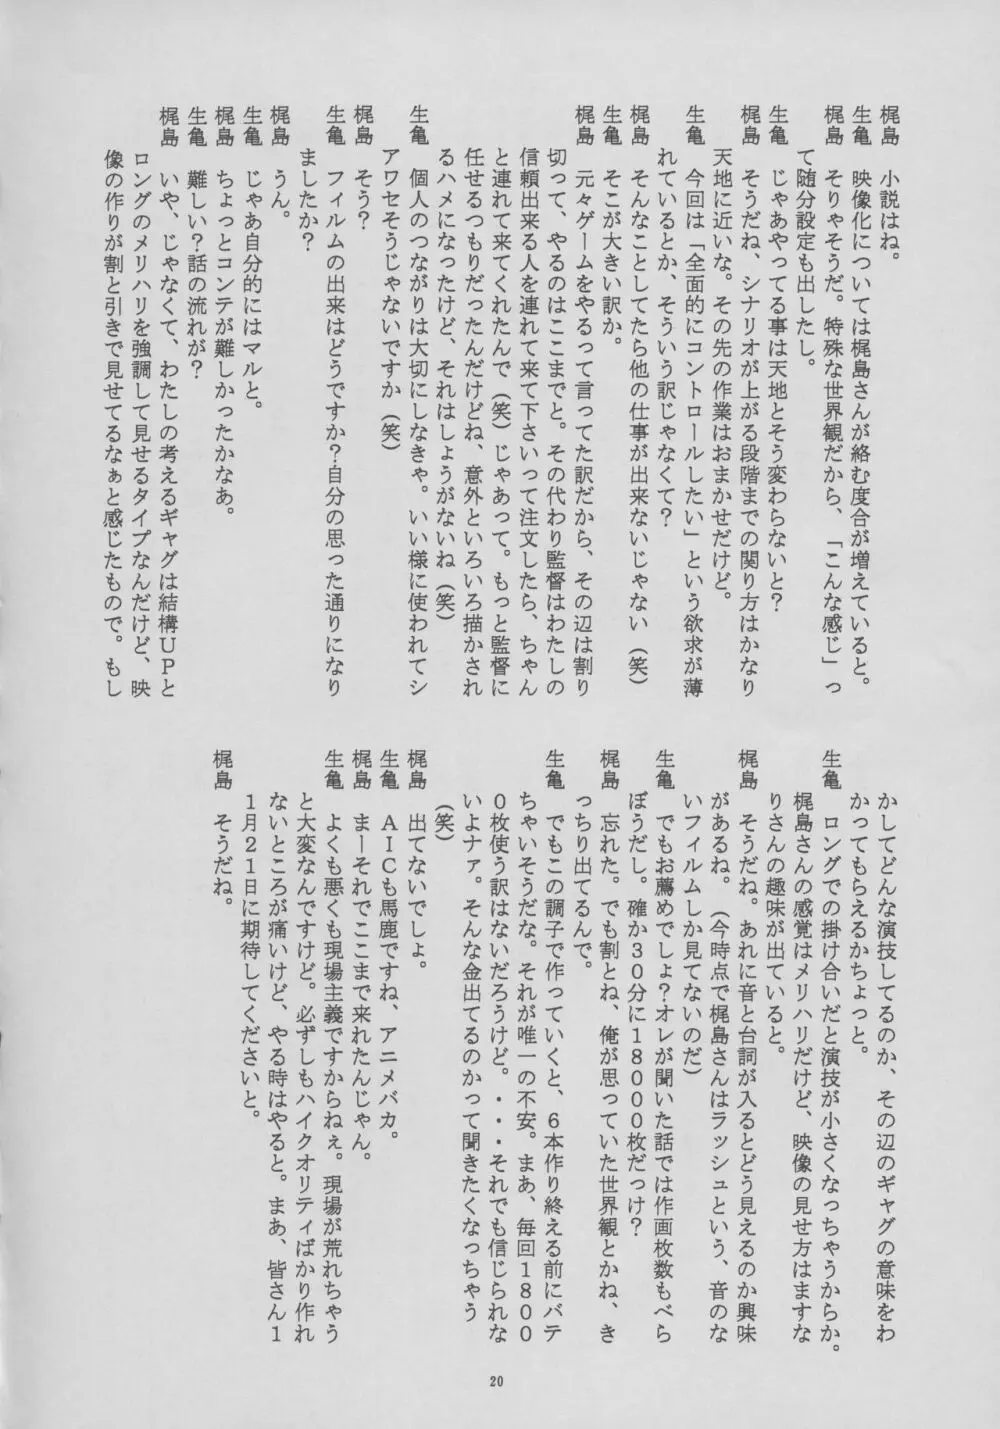 梶島　小説はね。
生亀　映像化については梶島さんが絡む度合が増えていると。
梶島　そりゃそうだ。特殊な世界観だから、「こんな感じ」っ
て随分設定も出したし。
生亀　じゃあやってる事は天地とそう変わらないと？
梶島　そうだね、シナリオが上がる段階までの関り方はかなり
天地に近いな。その先の作業はおまかせだけど。
生亀　今回は「全面的にコントロールしたい」という欲求が薄
れているとか、そういう訳じゃなくて？
梶島　そんなことしてたら他の仕事が出来ないじゃない（笑）
生亀　そこが大きい訳か。
梶島　元々ゲームをやるって言ってた訳だから、その辺は割り
切って、やるのはここまでと。その代わり監督はわたしの
信頼出来る人を連れて来て下さいって注文したら、ちゃん
と連れて来てくれたんで（笑）じゃあって。もっと監督に
任せるつもりだったんだけどね、意外といろいろ描かされ
るハメになったけど、それはしょうがないね（笑）
生亀　個人のつながりは大切にしなきゃ。いい様に使われてシ
アワセそうじゃないですか（笑）
梶島　そう？
生亀　フィルムの出来はどうですか？自分の思った通りになり
ましたか？
梶島　うん。
生亀　じゃあ自分的にはマルと。
梶島　ちょっとコンテが難しかったかなあ。
生亀　難しい？話の流れが？
梶島　いや、じゃなくて、わたしの考えるギャグは結構ＵＰと
ロングのメリハリを強調して見せるタイプなんだけど、映
像の作りが割と引きで見せてるなぁと感じたもので。もし
かしてどんな演技してるのか、その辺のギャグの意味をわ
かってもらえるかちょっと。
生亀　ロングでの掛け合いだと演技が小さくなっちゃうからか。
梶島さんの感覚はメリハリだけど、映像の見せ方はますな
りさんの趣味が出ていると。
梶島　そうだね。あれに音と台詞が入るとどう見えるのか興味
があるね。（今時点で梶島さんはラッシュという、音のな
いフィルムしか見てないのだ）
生亀　でもお薦めでしょ？オレが聞いた話では作画枚数もべら
ぼうだし。確か３０分に１８０００枚だっけ？
梶島　忘れた。でも割とね、俺が思っていた世界観とかね、き
っちり出てるんで。
生亀　でもこの調子で作っていくと、６本作り終える前にバテ
ちゃいそうだな。それが唯一の不安。まあ、毎回１８００
０枚使う訳はないだろうけど。・・・それでも信じられな
いよナァ。そんな金出てるのかって聞きたくなっちゃう
（笑）
梶島　出てないでしょ。
生亀　ＡＩＣも馬鹿ですね、アニメバカ。
梶島　まーそれでここまで来れたんじゃん。
生亀　よくも悪くも現場主義ですからねぇ。現場が荒れちゃう
と大変なんですけど。必ずしもハイクオリティばかり作れ
ないところが痛いけど、やる時はやると。まあ、皆さん１
１月２１日に期待してくださいと。
梶島　そうだね。
20